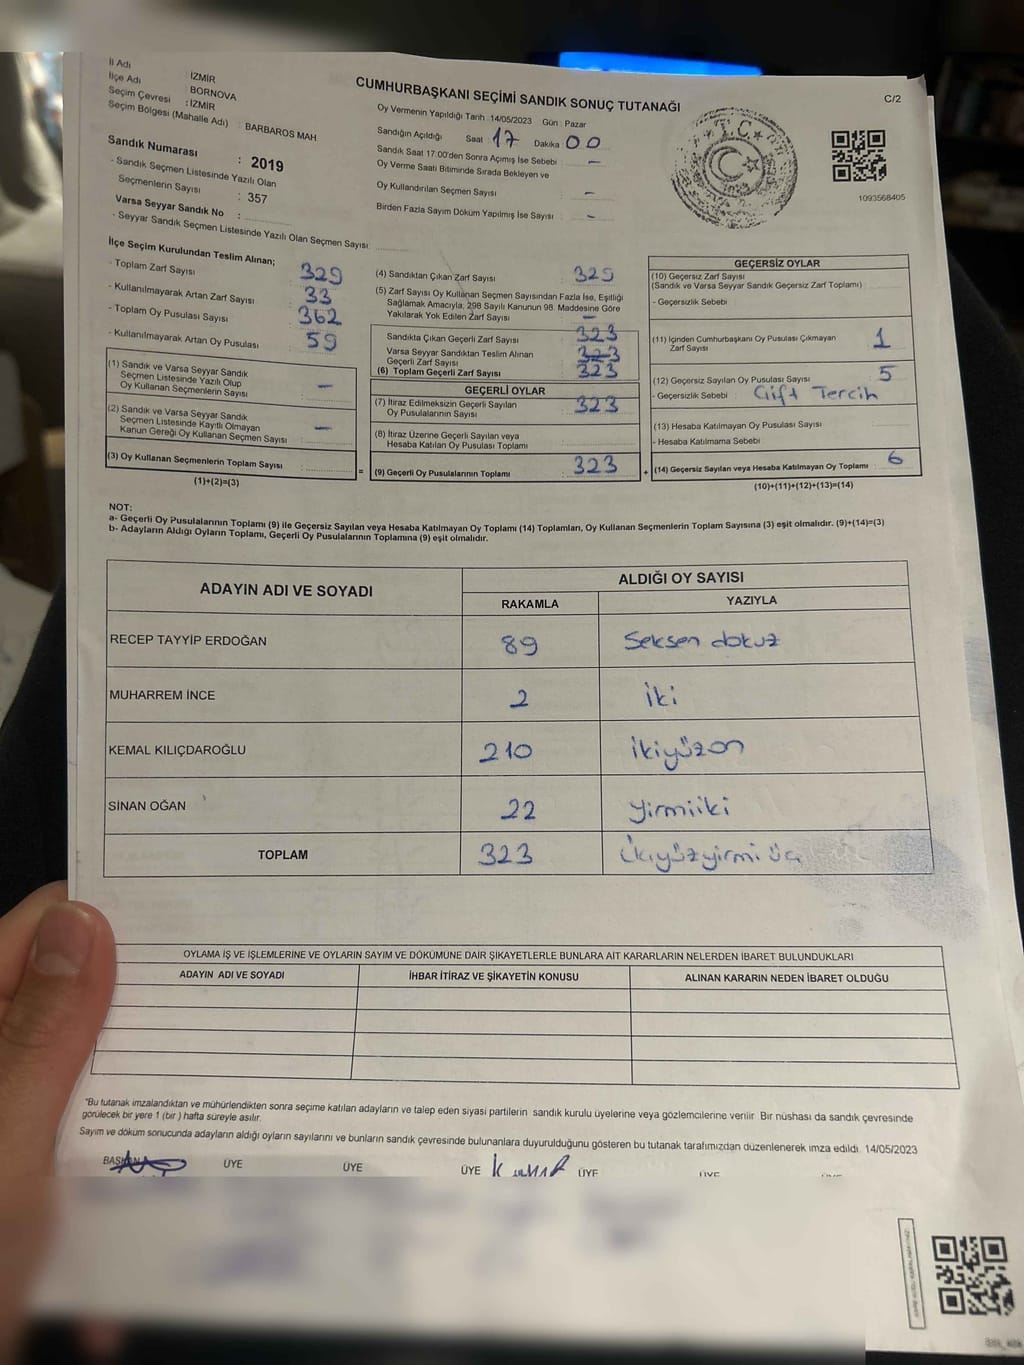 İl Adı : İZMİR
İlçe Adı : BORNOVA
Seçim Çevresi : İZMİR
Seçim Bölgesi (Mahalle Adı) : BARBAROS MAH
Sandık Numarası : 2019
- Sandık Seçmen Listesinde Yazılı Olan
Seçmenlerin Sayısı : 357
Varsa Seyyar Sandık No :
- Seyyar Sandık Seçmen Listesinde Yazılı Olan Seçmen Sayısı
CUMHURBAŞKANI SEÇİMİ SANDIK SONUÇ TUTANAĞI
Oy Vermenin Yapıldığı Tarih : 14/05/2023 Gün : Pazar
Sandığın Açıldığı Saat : 17 Dakika 00
Sandık Saat 17:00'den Sonra Açımış İse Sebebi : -
Oy Verme Saati Bitiminde Sırada Bekleyen ve
Oy Kullandırılan Seçmen Sayısı : -
Birden Fazla Sayım Döküm Yapılmış İse Sayısı : -
T.C.
C/2
1093568405
İlçe Seçim Kurulundan Teslim Alınan;
- Toplam Zarf Sayısı : 329
- Kullanılmayarak Artan Zarf Sayısı : 33
- Toplam Oy Pusulası Sayısı : 362
- Kullanılmayarak Artan Oy Pusulası : 59
(1) Sandık ve Varsa Seyyar Sandık
Seçmen Listesinde Yazılı Olup
Oy Kullanan Seçmenlerin Sayısı : -
(2) Sandık ve Varsa Seyyar Sandık
Seçmen Listesinde Kayıtlı Olmayan
Kanun Gereği Oy Kullanan Seçmen Sayısı : -
(3) Oy Kullanan Seçmenlerin Toplam Sayısı :
(1)+(2)=(3)
=
(4) Sandıktan Çıkan Zarf Sayısı : 329
(5) Zarf Sayısı Oy Kullanan Seçmen Sayısından Fazla İse, Eşitliği
Sağlamak Amacıyla, 298 Sayılı Kanunun 98. Maddesine Göre
Yakılarak Yok Edilen Zarf Sayısı : -
Sandıkta Çıkan Geçerli Zarf Sayısı : 323
Varsa Seyyar Sandıktan Teslim Alınan
Geçerli Zarf Sayısı : 323
(6) Toplam Geçerli Zarf Sayısı : 323
GEÇERLİ OYLAR
(7) İtiraz Edilmeksizin Geçerli Sayılan
Oy Pusulalarının Sayısı : 323
(8) İtiraz Üzerine Geçerli Sayılan veya
Hesaba Katılan Oy Pusulası Toplamı :
(9) Geçerli Oy Pusulalarının Toplamı : 323
+
GEÇERSİZ OYLAR
(10) Geçersiz Zarf Sayısı
(Sandık ve Varsa Seyyar Sandık Geçersiz Zarf Toplamı) :
- Geçersizlik Sebebi :
(11) İçinden Cumhurbaşkanı Oy Pusulası Çıkmayan
Zarf Sayısı : 1
(12) Geçersiz Sayılan Oy Pusulası Sayısı : 5
- Geçersizlik Sebebi : Çift Tercih
(13) Hesaba Katılmayan Oy Pusulası Sayısı :
- Hesaba Katılmama Sebebi :
(14) Geçersiz Sayılan veya Hesaba Katılmayan Oy Toplamı : 6
(10)+(11)+(12)+(13)=(14)
NOT:
a- Geçerli Oy Pusulalarının Toplamı (9) ile Geçersiz Sayılan veya Hesaba Katılmayan Oy Toplamı (14) Toplamları, Oy Kullanan Seçmenlerin Toplam Sayısına (3) eşit olmalıdır. (9)+(14)=(3)
b- Adayların Aldığı Oyların Toplamı, Geçerli Oy Pusulalarının Toplamına (9) eşit olmalıdır.
ADAYIN ADI VE SOYADI ALDIĞI OY SAYISI
RAKAMLA YAZIYLA
RECEP TAYYİP ERDOĞAN 89 Seksen dokuz
MUHARREM İNCE 2 iki
KEMAL KILIÇDAROĞLU 210 ikiyüzon
SİNAN OĞAN 22 yirmiiki
TOPLAM 323 Ükiyüzyirmi üç
OYLAMA İŞ VE İŞLEMLERİNE VE OYLARIN SAYIM VE DÖKÜMÜNE DAİR ŞİKAYETLERLE BUNLARA AİT KARARLARIN NELERDEN İBARET BULUNDUKLARI
ADAYIN ADI VE SOYADI İHBAR İTİRAZ VE ŞİKAYETİN KONUSU ALINAN KARARIN NEDEN İBARET OLDUĞU
"Bu tutanak imzalandıktan ve mühürlendikten sonra seçime katılan adayların ve talep eden siyasi partilerin sandık kurulu üyelerine veya gözlemcilerine verilir Bir nüshası da sandık çevresinde
görülecek bir yere 1 (bir) hafta süreyle asılır.
Sayım ve döküm sonucunda adayların aldığı oyların sayılarını ve bunların sandık çevresinde bulunanlara duyurulduğunu gösteren bu tutanak tarafımızdan düzenlenerek imza edildi. 14/05/2023
BAŞKAN ÜYE ÜYE ÜYE ÜYE ÜYE